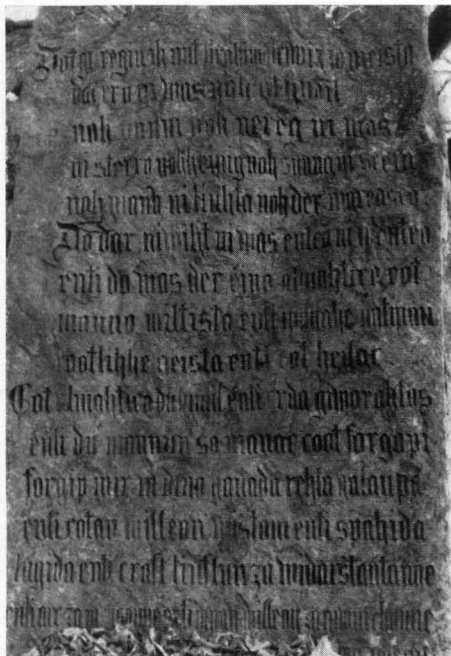 meista
dat ero ni was noh ufhimil
noh paum noh pereg ni was
ni sterro nohheinig noh sunna ni scein
noh mano ni liuhta noh der mareo seo
Do dar niwiht ni was enteo ni wenteo
enti do was der eino almahtico cot
manno miltisto enti manake mit inan
cootlihhe geista enti cot heilac
Cot almahtico du himil enti erda gaworahtos
enti du mannun so manac coot forgapi
forgip mir in dino ganada rehta galaupa
enti cotan willeon wistom enti spahida
tugida enti craft tiuflun za widarstantanne
enti arc za enti dinan willeon za